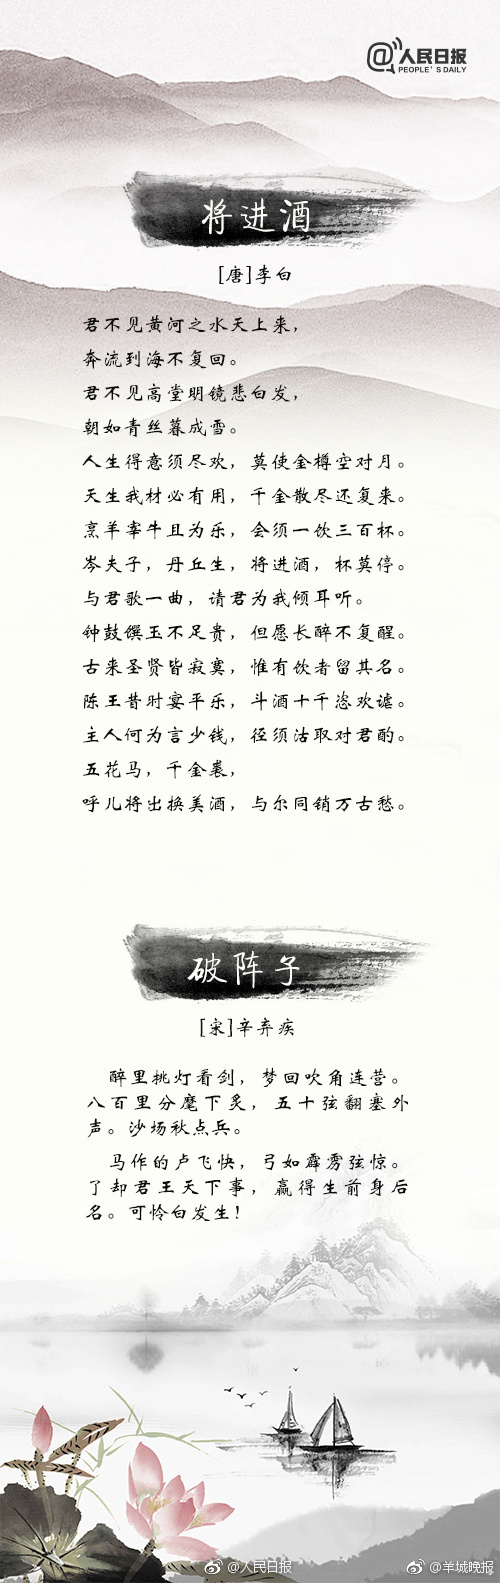 @人民日报
PEOPLE'S DAILY
将进酒
[唐]李白
君不见黄河之水天上来，
奔流到海不复回。
君不见高堂明镜悲白发，
朝如青丝暮成雪。
人生得意须尽欢，莫使金樽空对月。
天生我材必有用，千金散尽还复来。
烹羊宰牛且为乐，会须一饮三百杯。
岑夫子，丹丘生，将进酒，杯莫停。
与君歌一曲，请君为我倾耳听。
钟鼓馔玉不足贵，但愿长醉不复醒。
古来圣贤皆寂寞，惟有饮者留其名。
陈王昔时宴平乐，斗酒十千恣欢谑。
主人何为言少钱，径须沽取对君酌。
五花马，千金裘，
呼儿将出换美酒，与尔同销万古愁。
破阵子
[宋]辛弃疾
醉里挑灯看剑，梦回吹角连营。
八百里分麾下炙，五十弦翻塞外
声。沙场秋点兵。
马作的卢飞快，弓如霹雳弦惊。
了却君王天下事，赢得生前身后
名。可怜白发生！
@人民日报
@羊城晚报